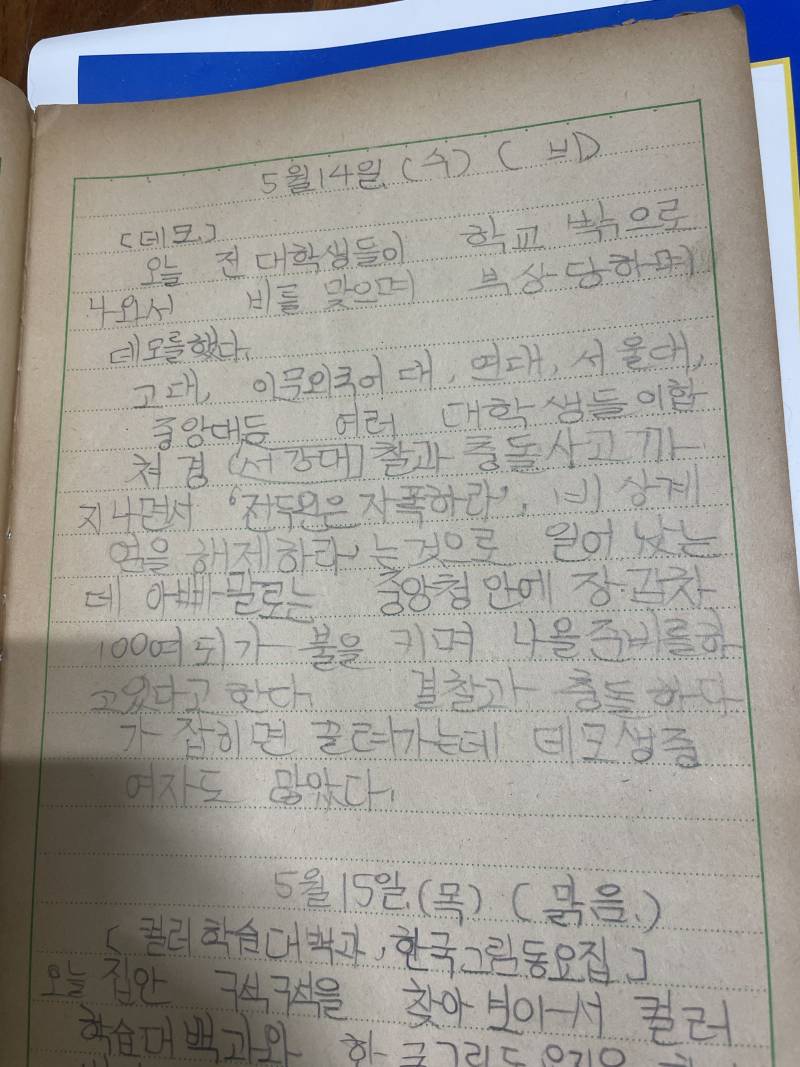 5월14일 (수) ( 비)
[데모]
오늘 전 대학생들이 학교 밖으로
나와서 비를 맞으며 부상 당하며
데모를했다.
고대, 이문외국어 대, 연대, 서울대,
중앙대등 여러 대학생들이합
쳐 경 (서강대) 찰과 충돌사고 까
지나면서 '전두환은 자폭하라', '비상계
엄을 해제하라' 는것으로 일어 났는
데 아빠 말로는 중앙청안에 장갑차
100여 되가 불을 키며 나올준비를하
고있다고 한다. 결찰과 충돌 하다
가 잡히면 끌려가는데 데모생중
여자도 많았다.
5월15일.(목) ( 맑음.)
[컬러학습대백과, 한국그림동요집]
오늘 집안 구석구석을 찾아 보아서 컬러
학습대백과와